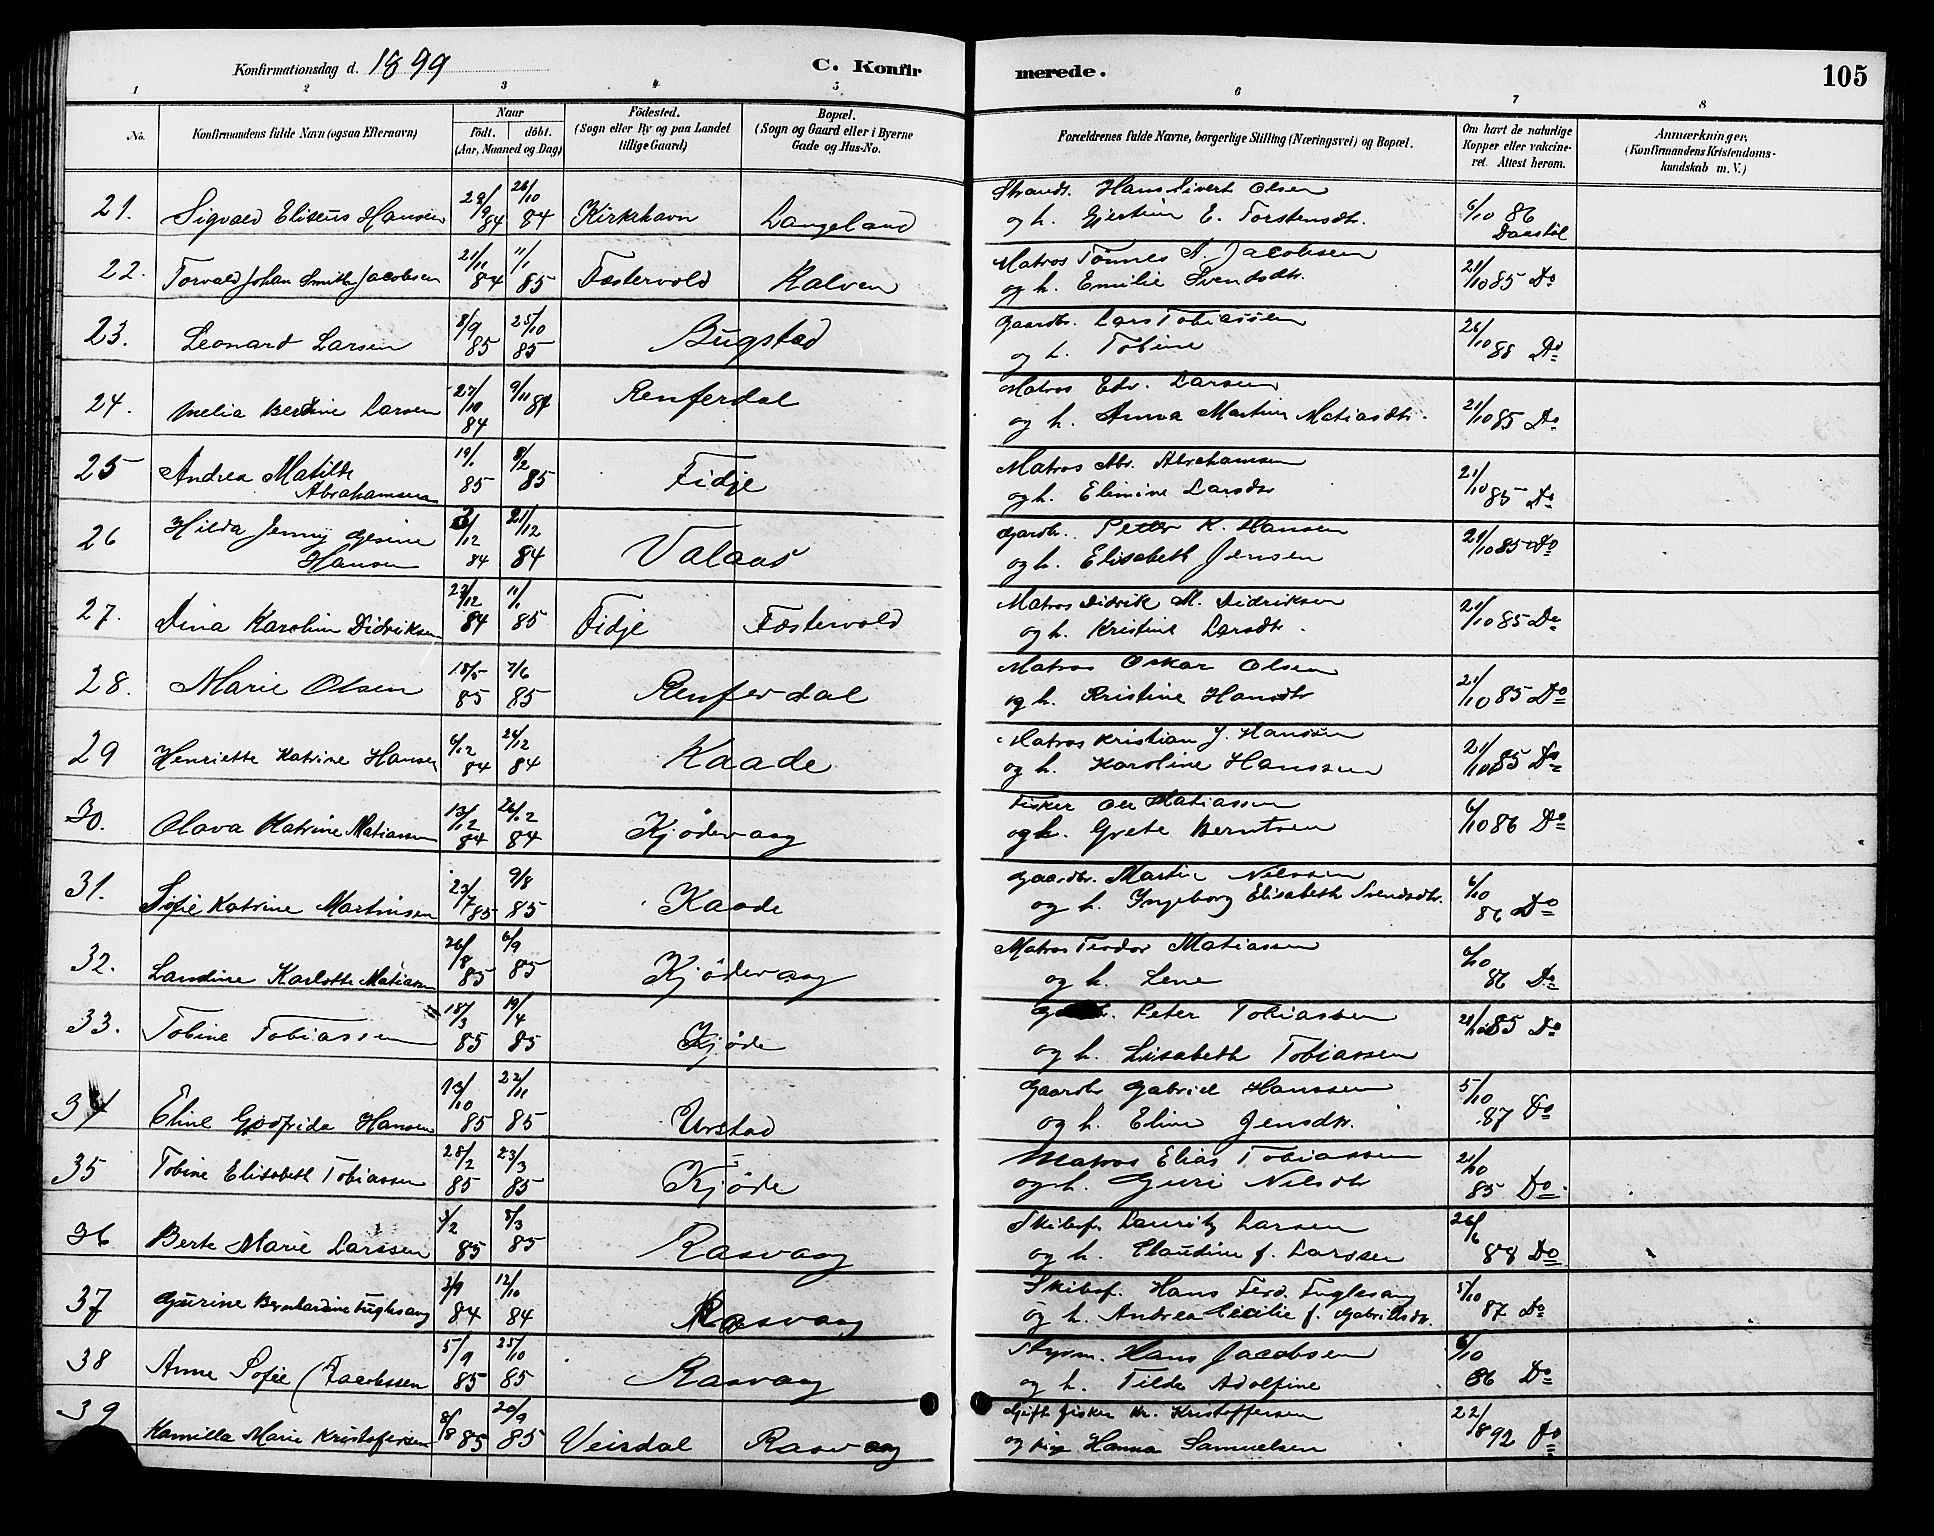 Konfirmationsdag d. 1899 C. Konfirmerede. 105
1 2 3 4 5 6 7 8
No. Konfirmandens fulde Navn (ogsaa Efternavn) Naar födt. döbt. (Aar, Maaned og Dag) Födested. (Sogn eller By og paa Landet tillige Gaard) Bopæl. (Sogn og Gaard eller i Byerne Gade og Hus-No. Forældrenes fulde Navne, borgerlige Stilling (Næringsvei) og Bopæl. Om havt de naturlige Kopper eller vakcineret. Attest herom. Anmærkninger. (Konfirmandens Kristendomskundskab m. V.)
21. Sigvald Eliseus Hansen 28/9 84 26/10 84 Kirkehavn Langeland Strands. Hans Sivert Olsen 6/10 86
og h. Gjertine E. Torstensdtr. Daastöl
22. Torvald Johan Smith Jacobsen 21/11 84 11/1 85 Fæstervold Kalven Matros Tönnes A. Jacobsen 21/10 85 Do
og h. Emilie Svendsdtr.
23. Leonard Larsen 8/9 85 25/10 85 Bugstad Gaardbr. Lars Tobiassen 26/10 88 Do
og h. Tobine
24. Melia Bertine Larsen 27/10 84 9/11 84 Renferdal Matros Edv. Larsen
og h. Anna Martine Matiasdtr. 21/10 85 Do
25 Andrea Matilde Abrahamsen 19/1 85 8/2 85 Fidje Matros Abr. Abrahamsen 21/10 85 Do
og h. Elimine Larsdtr
26 Hilda Jenny Gesine Hansen /12 84 21/12 84 Valaas Gardbr. Petter K. Hansen 21/10 85 Do
og h. Elisabeth Jensen
27. Dina Karoline Didriksen 23/12 84 11/1 85 Fidje Fæstervold Matros Didrik M. Didriksen 21/10 85 Do
og h. Kristine Larsdtr.
28. Marie Olsen 18/5 85 7/6 85 Renferdal Matros Oskar Olsen 21/10 85 Do
og h. Kristine Hansdtr
29 Henriette Katrine Hansen 6/12 84 26/12 84 Kaade Matros Kristian J. Hansen 21/10 85 Do
og h. Karoline Hanssen
30. Olava Katrine Matiassen 13/12 84 26/12 84 Kjödevaag Fisker Ole Matiassen 6/10 86 Do
og h. Grete Berntsen
31. Sofie Katrine Martinsen 23/7 85 9/8 85 Kaade Gaardbr. Martin Nilssen 6/10 86 Do
og h. Ingeborg Elisabeth Svendsdtr.
32. Landine Karlotte Matiassen 26/8 85 6/9 85 Kjödevaag Matros Teodor Matiassen 6/10 86 Do
og h. Lene
33. Tobine Tobiassen 18/3 85 19/4 85 Kjöde Peter Tobiassen 21/10 85 Do
og h. Lisabeth Tobiassen
34 Eline Godfrida Hansen 13/10 85 22/11 85 Urstad Gaardbr Gabriel Hanssen 5/10 87 Do
og h. Eline Jensdtr.
35 Tobine Elisabeth Tobiassen 28/2 85 23/3 85 Kjöde Matros Elias Tobiassen 21/10 85 Do
og h. Guri Nilsdtr
36 Berte Marie Larssen /2 85 8/3 85 Rasvaag Skibsf. Lauritz Larsen 26/6 88 Do
og h. Claudine f. Larssen
37 Gurine Bernhardine Fuglesang 3/9 84 12/10 84 Rasvaag Skibsf. Hans Ferd. Fuglesang 5/10 87 Do
og h. Andrea Cecilie f. Gabrielsdtr.
38 Anne Sofie (Jacobssen 5/9 85 25/10 85 Rasvaag Styrm. Hans Jacobsen 6/10 86 Do
og h. Tilde Adolfine
39 Kamilla Marie Kristofersen 8/8 85 20/9 85 Veisdal Rasvaag Gift fisker Kr. Kristoffersen 22/8 92 Do
og pige Hanna Samuelsen